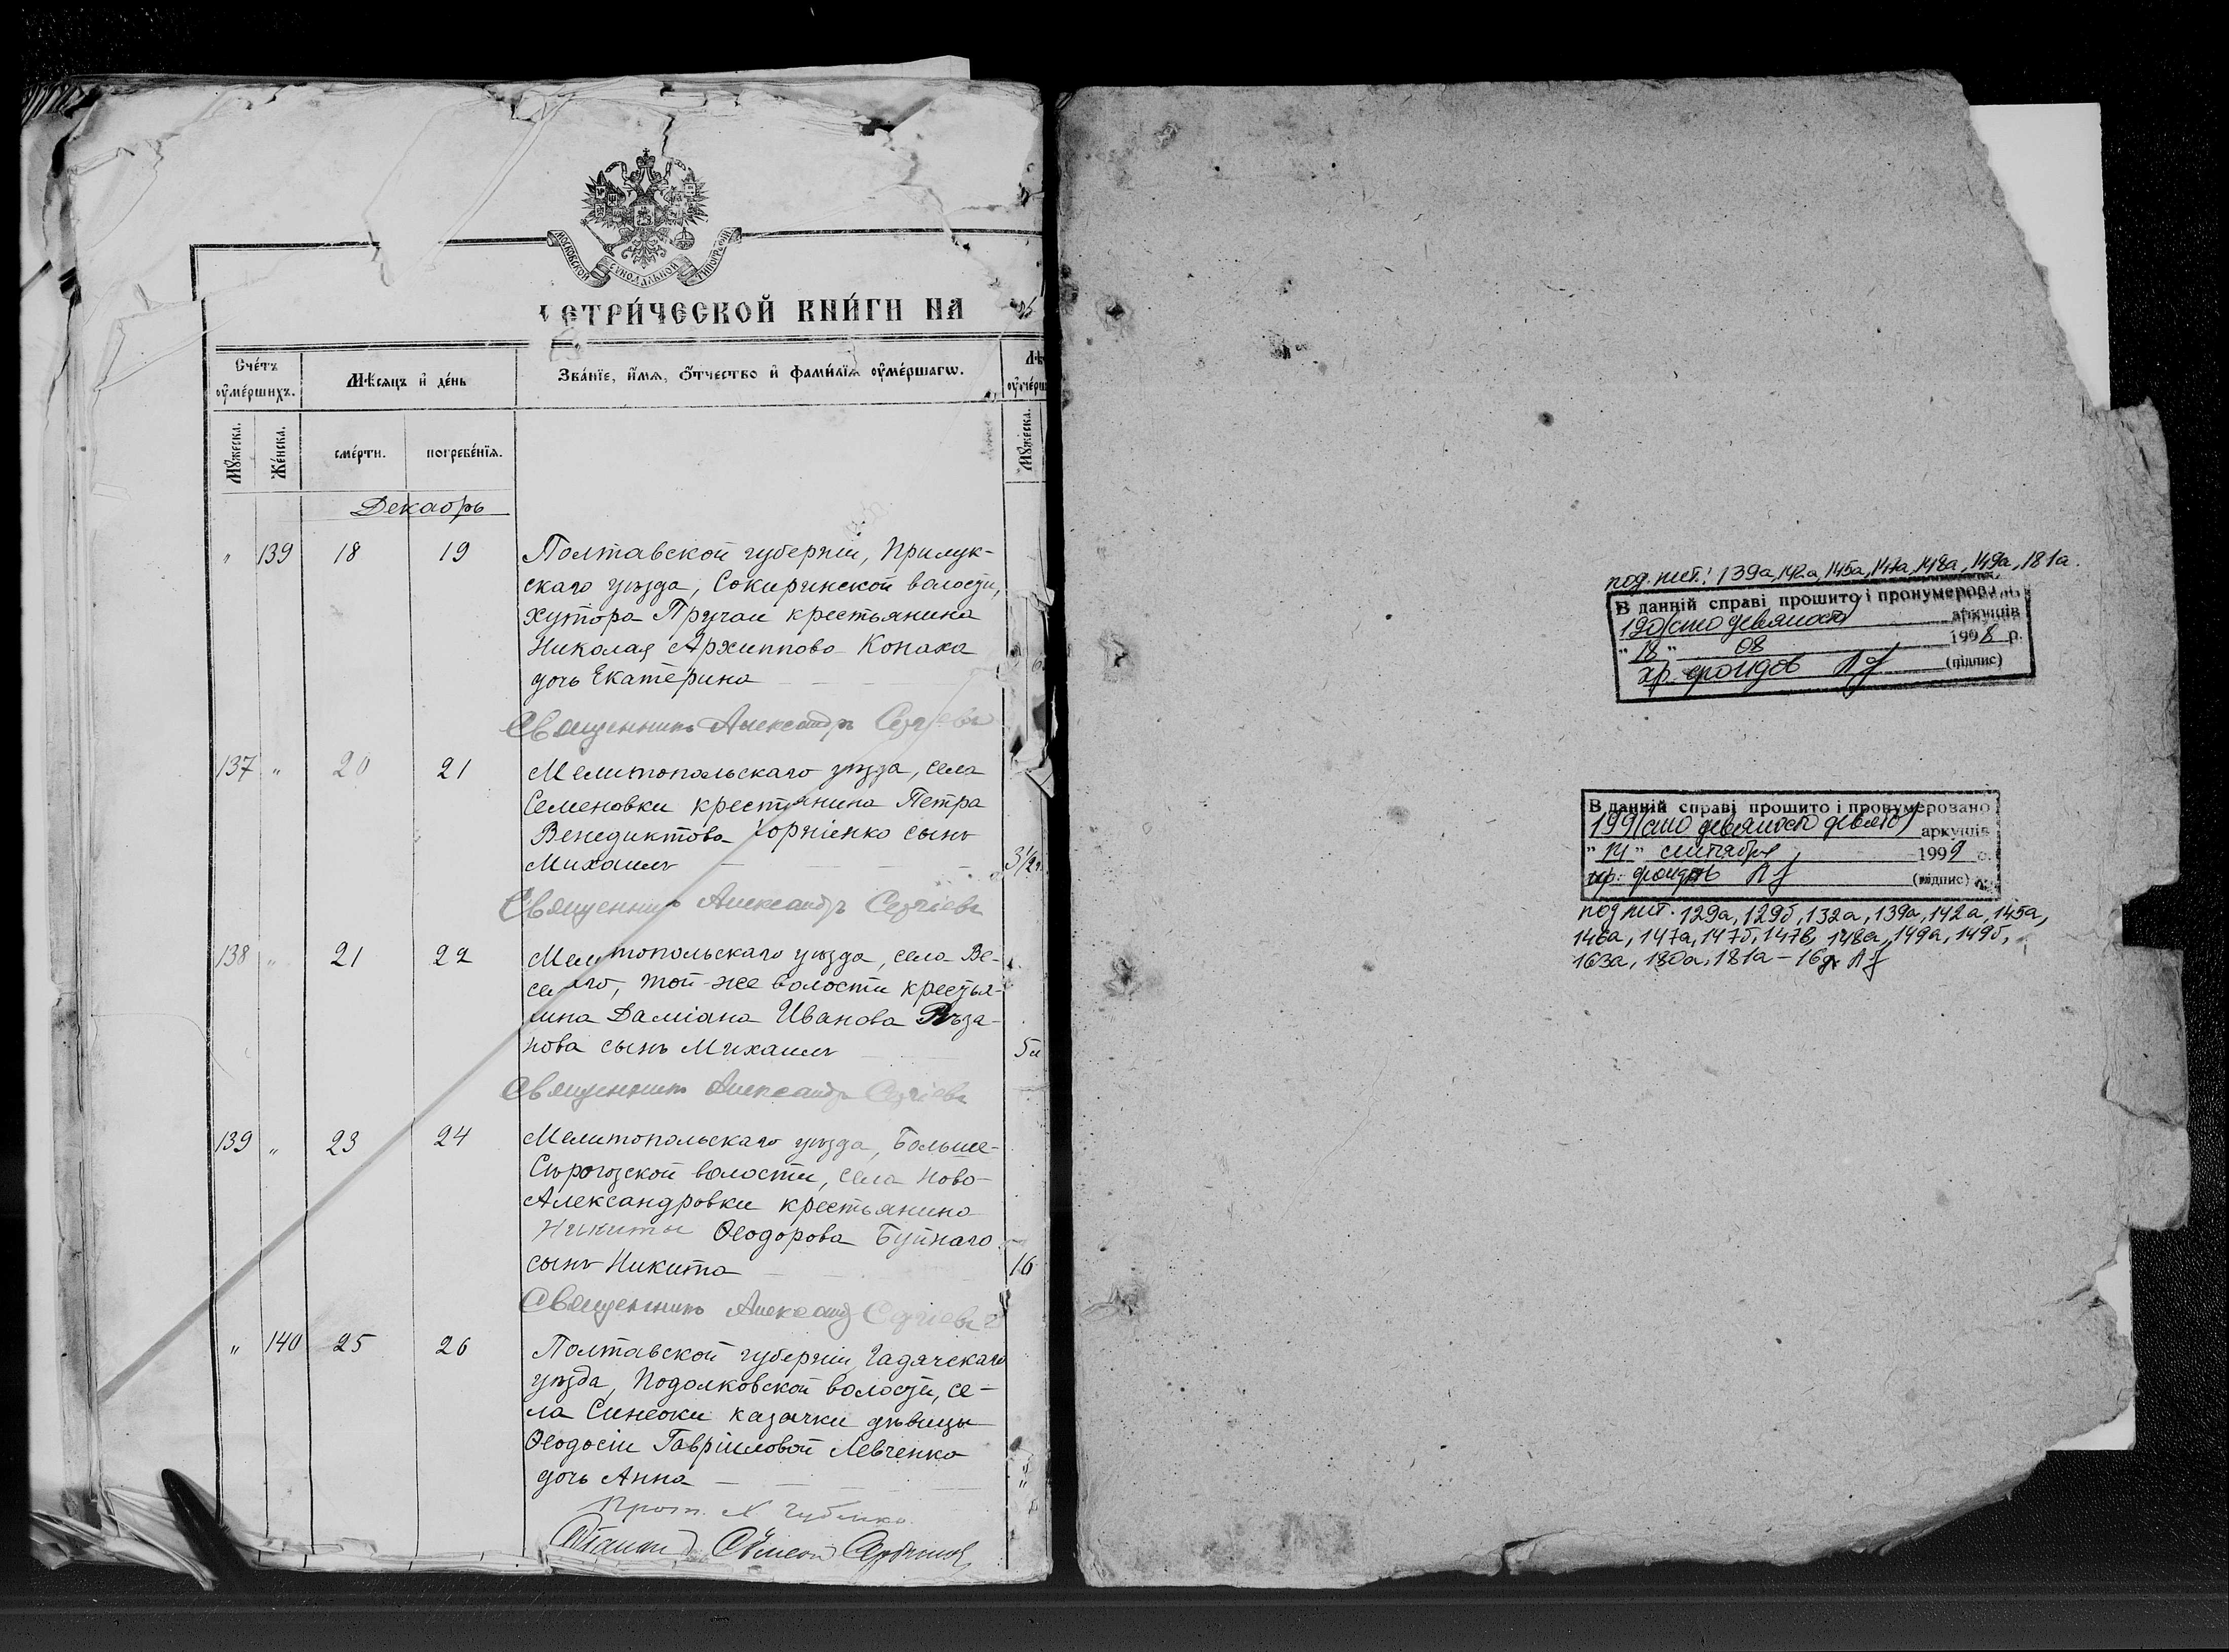 МОСКОВСКОЙ СѴНОДАЛЬНОЙ ТИПОГРАФІИ
ЕТРИ́ЧЕСКОЙ КНИ́ГИ НА
Сче́тъ оу҆ме́ршихъ.
Мѣ́сяцъ и҆ де́нь
Зва́нїе, и҆́мѧ, ѻ҆́тчество и҆ фами́лїѧ оу҆ме́ршагѡ.
Мꙋ́жеска.
Же́нска.
сме́рти.
погребе́нїѧ.
Мꙋ́жеска.
Декабрь
" 139 18 19 Полтавской губерніи, Прилук-
скаго уѣзда, Сокиринской волости,
хутора Пручаи крестьянина
Николая Архиппова Конака
дочь Екатерина
Священникъ Александръ Сергіевъ
137 " 20 21 Мелитопольскаго уѣзда, села
Семеновки крестьянина Петра
Венедиктова Корніенко сынъ
Михаилъ 3½
Священникъ Александръ Сергіевъ
138 " 21 22 Мелитопольскаго уѣзда, села Ве-
селаго, той-же волости крестья-
нина Даміана Иванова Рѣза-
нова сынъ Михаилъ 5
Священникъ Александръ Сергіевъ
139 " 23 24 Мелитопольскаго уѣзда, Больше-
Сѣрогозской волости, села Ново-
Александровки крестьянина
Никиты Ѳеодорова Буйнаго
сынъ Никита 16
Священникъ Александръ Сергіевъ
" 140 25 26 Полтавской губерніи, Гадячскаго
уѣзда, Подолковской волости, се-
ла Синевки казачки дѣвицы
Ѳеодосіи Гавріиловой Левченко
дочь Анна
Прот. Губенко
Симеон
под лит.: 139а, 142а, 145а, 147а, 148а, 149а, 181а.
В данній справі прошито і пронумеровано
190 (сто девяносто) аркушів
" 18 " 08 1998 р.
хр. фондов (підпис)
В данній справі прошито і пронумеровано
199 (сто девяносто девять) аркушів
" 14 " сентября 1999 р.
хр. фондов (підпис)
под лит. 129а, 129б, 132а, 139а, 142а, 145а,
146а, 147а, 147б, 147в, 148а, 149а, 149б,
163а, 180а, 181а – 16